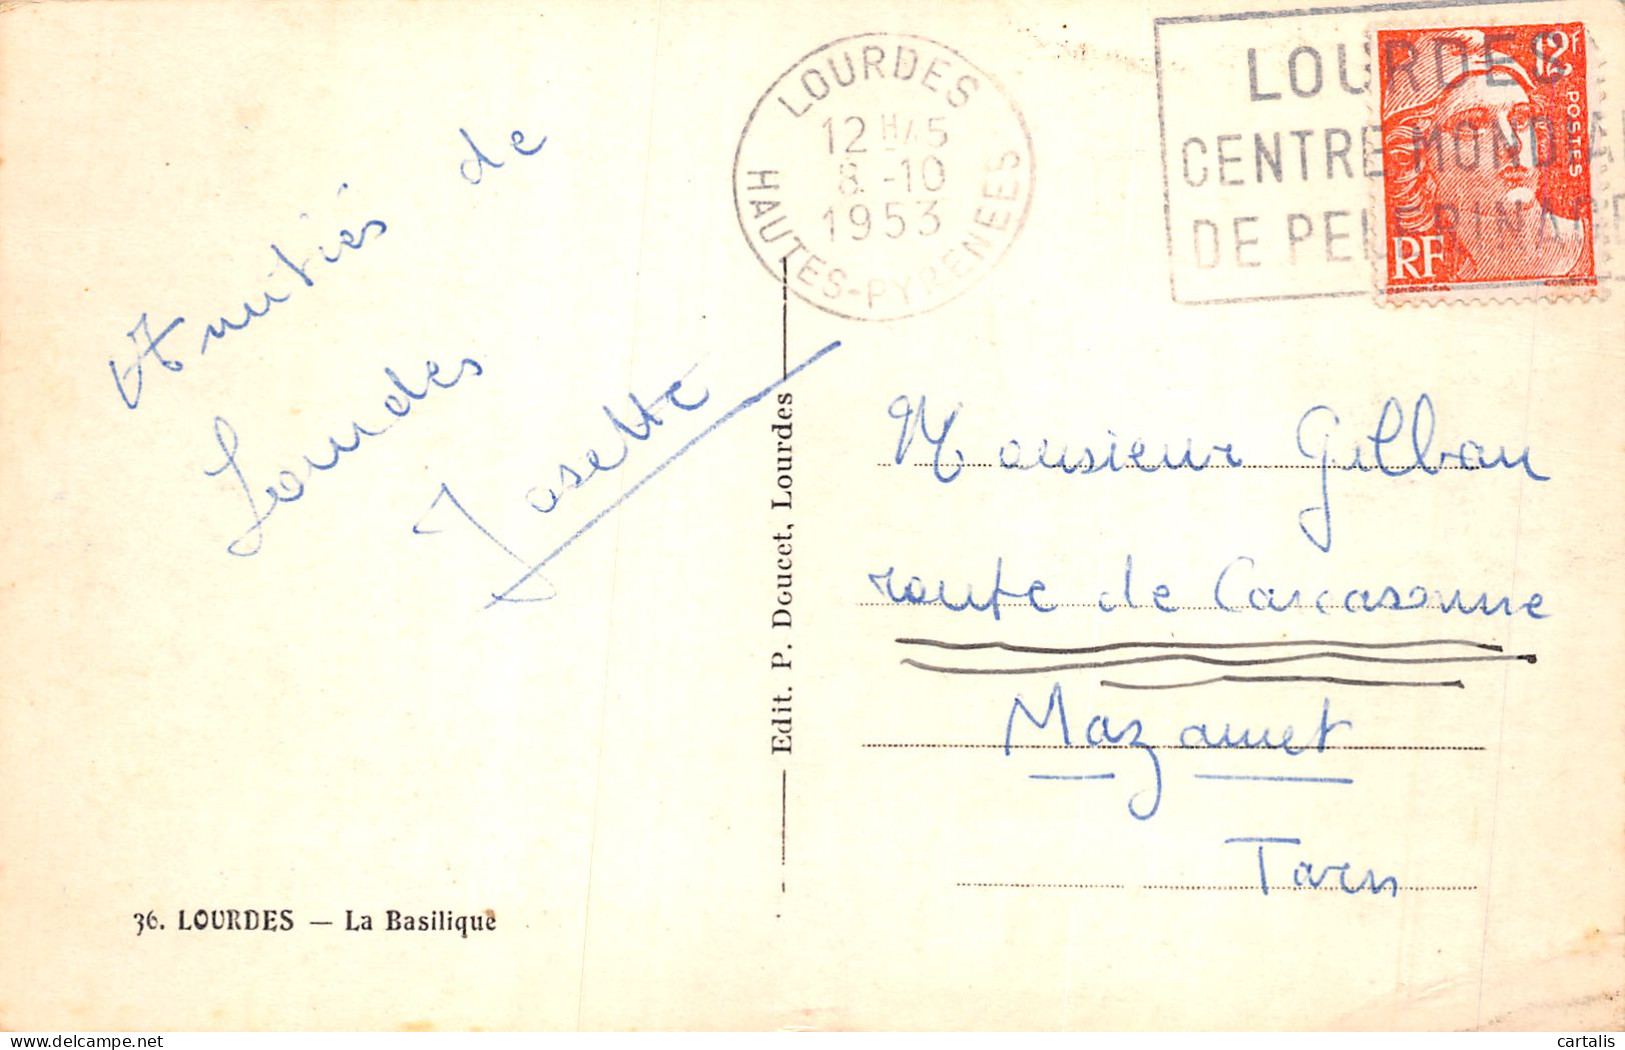 Amitiés de
Lourdes
Josette
36. LOURDES — La Basilique
Edit. P. Doucet, Lourdes
LOURDES
12 H 45
8 -10
1953
HAUTES-PYRENEES
LOURDES
CENTRE MONDIAL
DE PELERINAGE
12F
POSTES
RF
Monsieur Galban
route de Carcasonne
Mazamet
Tarn
delcampe.net
cartalis